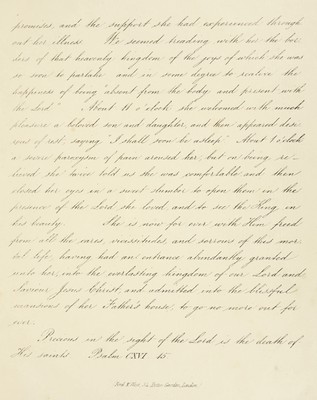 promises, and the support she had experienced through
out her illness. We seemed treading with her the bor
ders of that heavenly kingdom of the joys of which she was
so soon to partake and in some degree to realize the
happiness of being "absent from the body and present with
the Lord". About 11 o'clock she welcomed with much
pleasure a beloved son and daughter, and then appeared desi
rous of rest, saying, "I shall soon be asleep". About 1 o'clock
a severe paroxysm of pain aroused her, but on being re-
lieved she twice told us she was comfortable and then
closed her eyes in a sweet slumber to open them in the
presence of the Lord she loved, and to see the King in
his beauty. She is now for ever with Him freed
from all the cares, vicissitudes, and sorrows of this mor
tal life, having had an entrance abundantly granted
unto her, into the everlasting kingdom of our Lord and
Saviour Jesus Christ, and admitted into the blissful
mansions of her Father's house, to go no more out for
ever.
Precious in the sight of the Lord, is the death of
His saints. Psalm CXVI 15
London